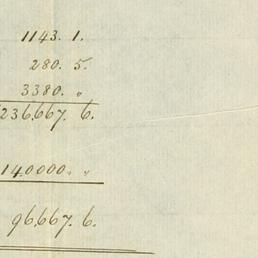 1143. 1.
280. 5.
3380. "
236,667. 6.
140000. "
96,667. 6.